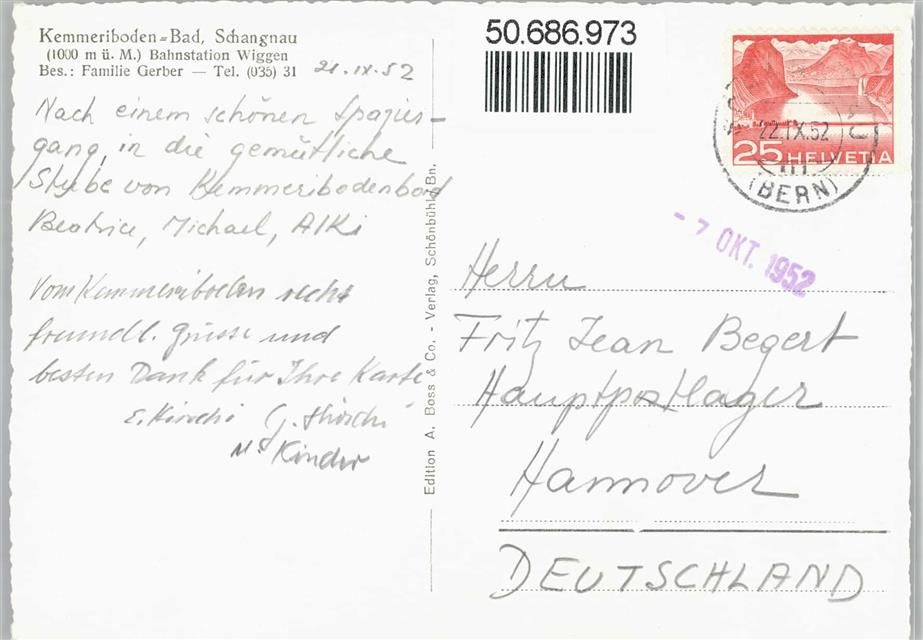 Kemmeriboden-Bad, Schangnau
(1000 m ü. M.) Bahnstation Wiggen
Bes.: Familie Gerber — Tel. (035) 31
21.IX.52
Nach einem schönen Spazier-
gang, in die gemütliche
Stube von Kemmeribodenbad
Beatrice, Michael, Alki
Vom Kemmeriboden recht
freundl. Grüsse und
besten Dank für Ihre Karte
Kinder
Edition A. Boss & Co. - Verlag, Schönbühl-Bn.
50.686.973
22.IX.52
(BERN)
25 HELVETIA
- 7 OKT. 1952
Herrn
Fritz Jean Begert
Hauptpostlager
Hannover
DEUTSCHLAND